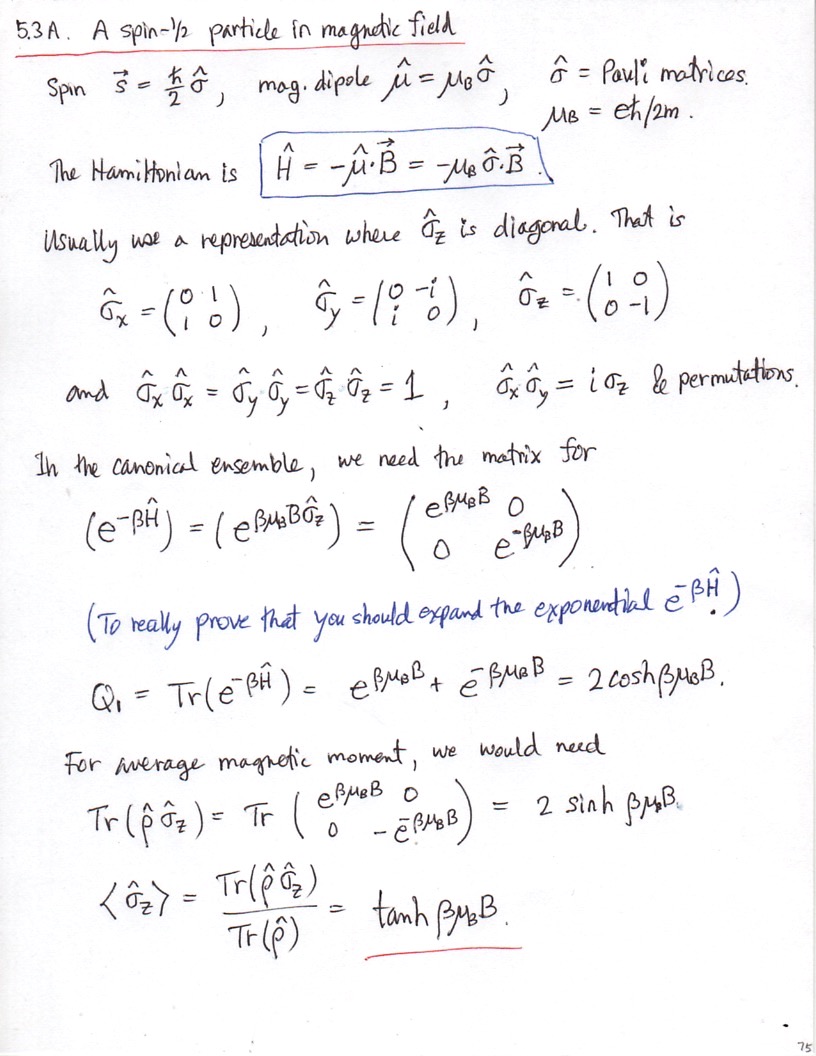 5.3A. A spin-1/2 particle in magnetic field
Spin s⃗ = ħ/2 σ̂, mag. dipole μ̂ = μB σ̂, σ̂ = Pauli matrices.
μB = eħ/2m.
The Hamiltonian is Ĥ = -μ̂·B⃗ = -μB σ̂·B⃗.
Usually use a representation where σ̂z is diagonal. That is
σ̂x = (0 1; 1 0), σ̂y = (0 -i; i 0), σ̂z = (1 0; 0 -1)
and σ̂x σ̂x = σ̂y σ̂y = σ̂z σ̂z = 1, σ̂x σ̂y = i σz & permutations.
In the canonical ensemble, we need the matrix for
(e^{-βĤ}) = (e^{βμB B σ̂z}) = (e^{βμB B} 0; 0 e^{-βμB B})
(To really prove that you should expand the exponential e^{-βĤ}.)
Q₁ = Tr(e^{-βĤ}) = e^{βμB B} + e^{-βμB B} = 2 cosh βμB B.
For average magnetic moment, we would need
Tr(ρ̂ σ̂z) = Tr (e^{βμB B} 0; 0 -e^{-βμB B}) = 2 sinh βμB B.
⟨σ̂z⟩ = Tr(ρ̂ σ̂z) / Tr(ρ̂) = tanh βμB B.
75